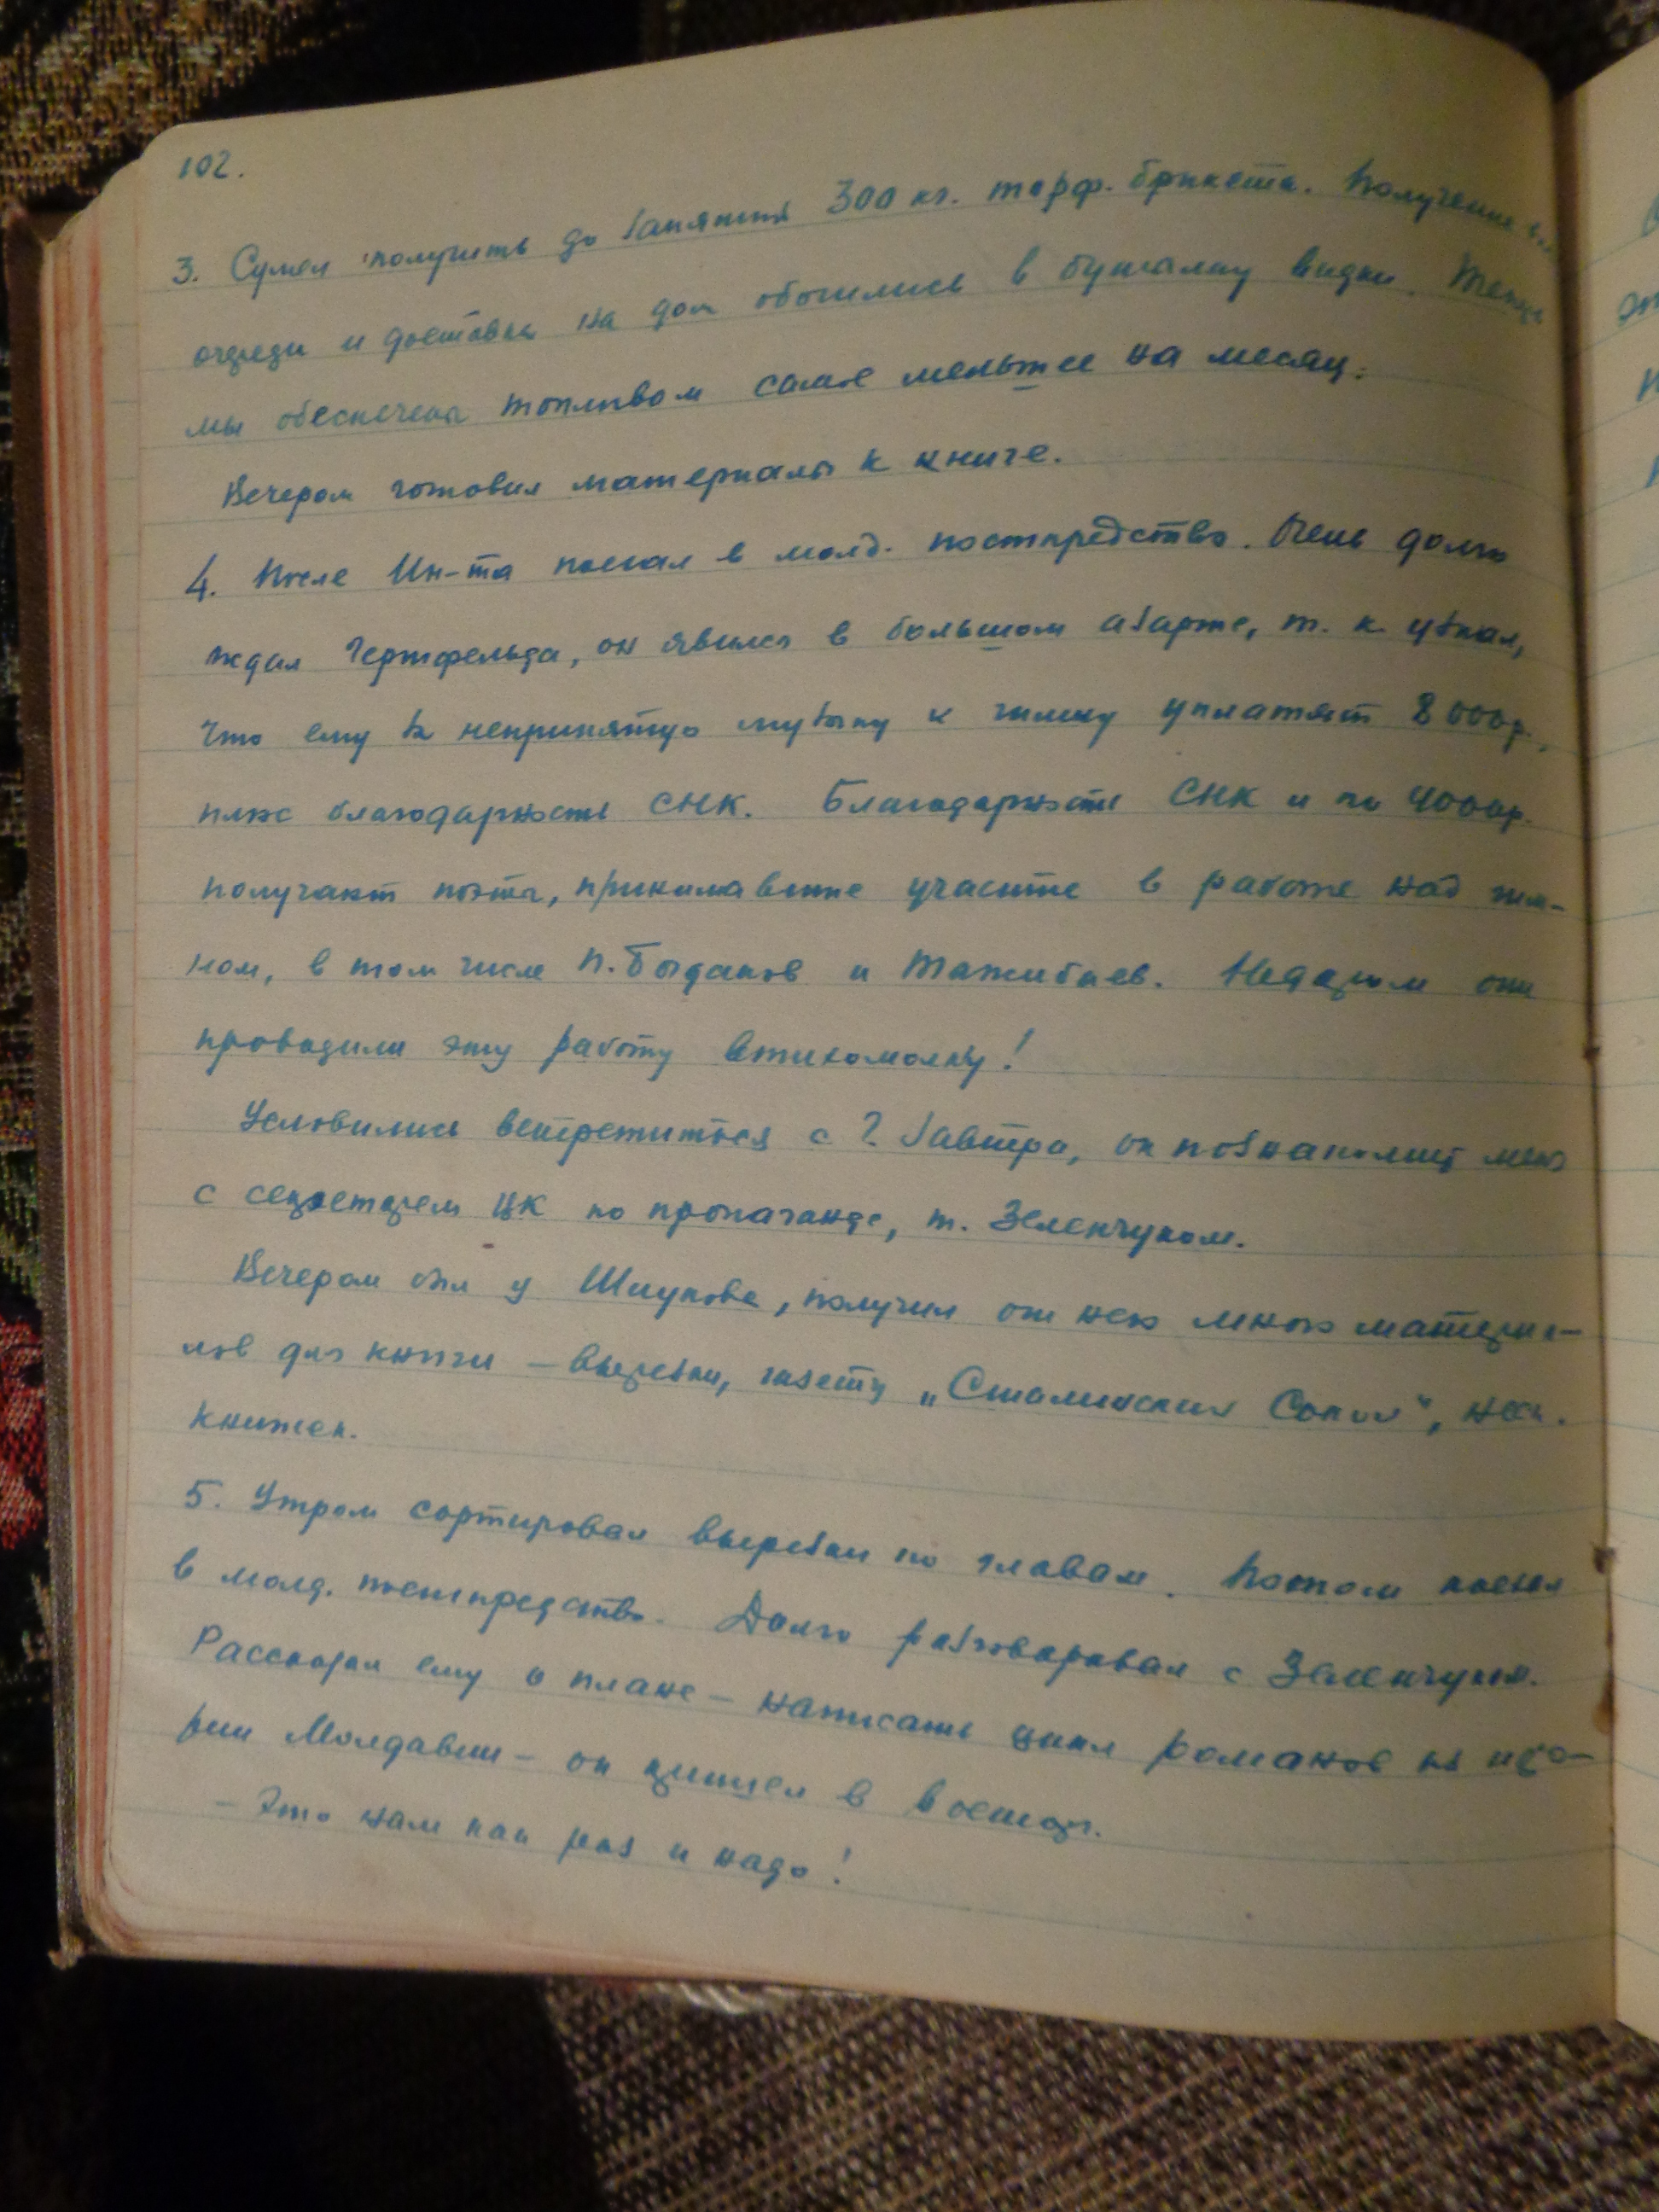 102.
3. Сумел получить до занятия 300 кг. торф. брикета. Получение
очереди и доставка на дом обошлись в бутылку водки. Теперь
мы обеспечены топливом самое меньшее на месяц.
Вечером готовил материалы к книге.
4. После Ин-та поехал в молд. постпредство. Очень долго
ждал Гертфельда, он явился в большом азарте, т. к. узнал,
что ему за непринятую музыку к гимну уплатят 8000р.,
плюс благодарность СНК. Благодарность СНК и по 4000р.
получают поэты, принимавшие участие в работе над гим-
ном, в том числе П. Богданов и Тажибаев. Недаром они
проводили эту работу втихомолку!
Условились встретиться с Г. завтра, он познакомит меня
с секретарем ЦК по пропаганде, т. Зеленчуком.
Вечером был у Шиукова, получил от него много материа-
лов для книги – вырезки, газету „Сталинский Сокол", неск.
книжек.
5. Утром сортировал вырезки по главам. Потом поехал
в молд. постпредство. Долго разговаривал с Зеленчуком.
Рассказал ему о плане – написать цикл романов из исто-
рии Молдавии – он пришел в восторг.
– Это нам как раз и надо!